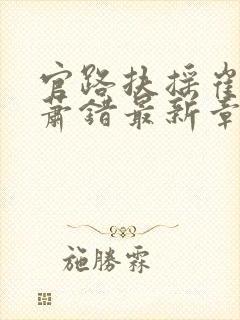 官路扶摇崔
肃错最新章
施勝霖